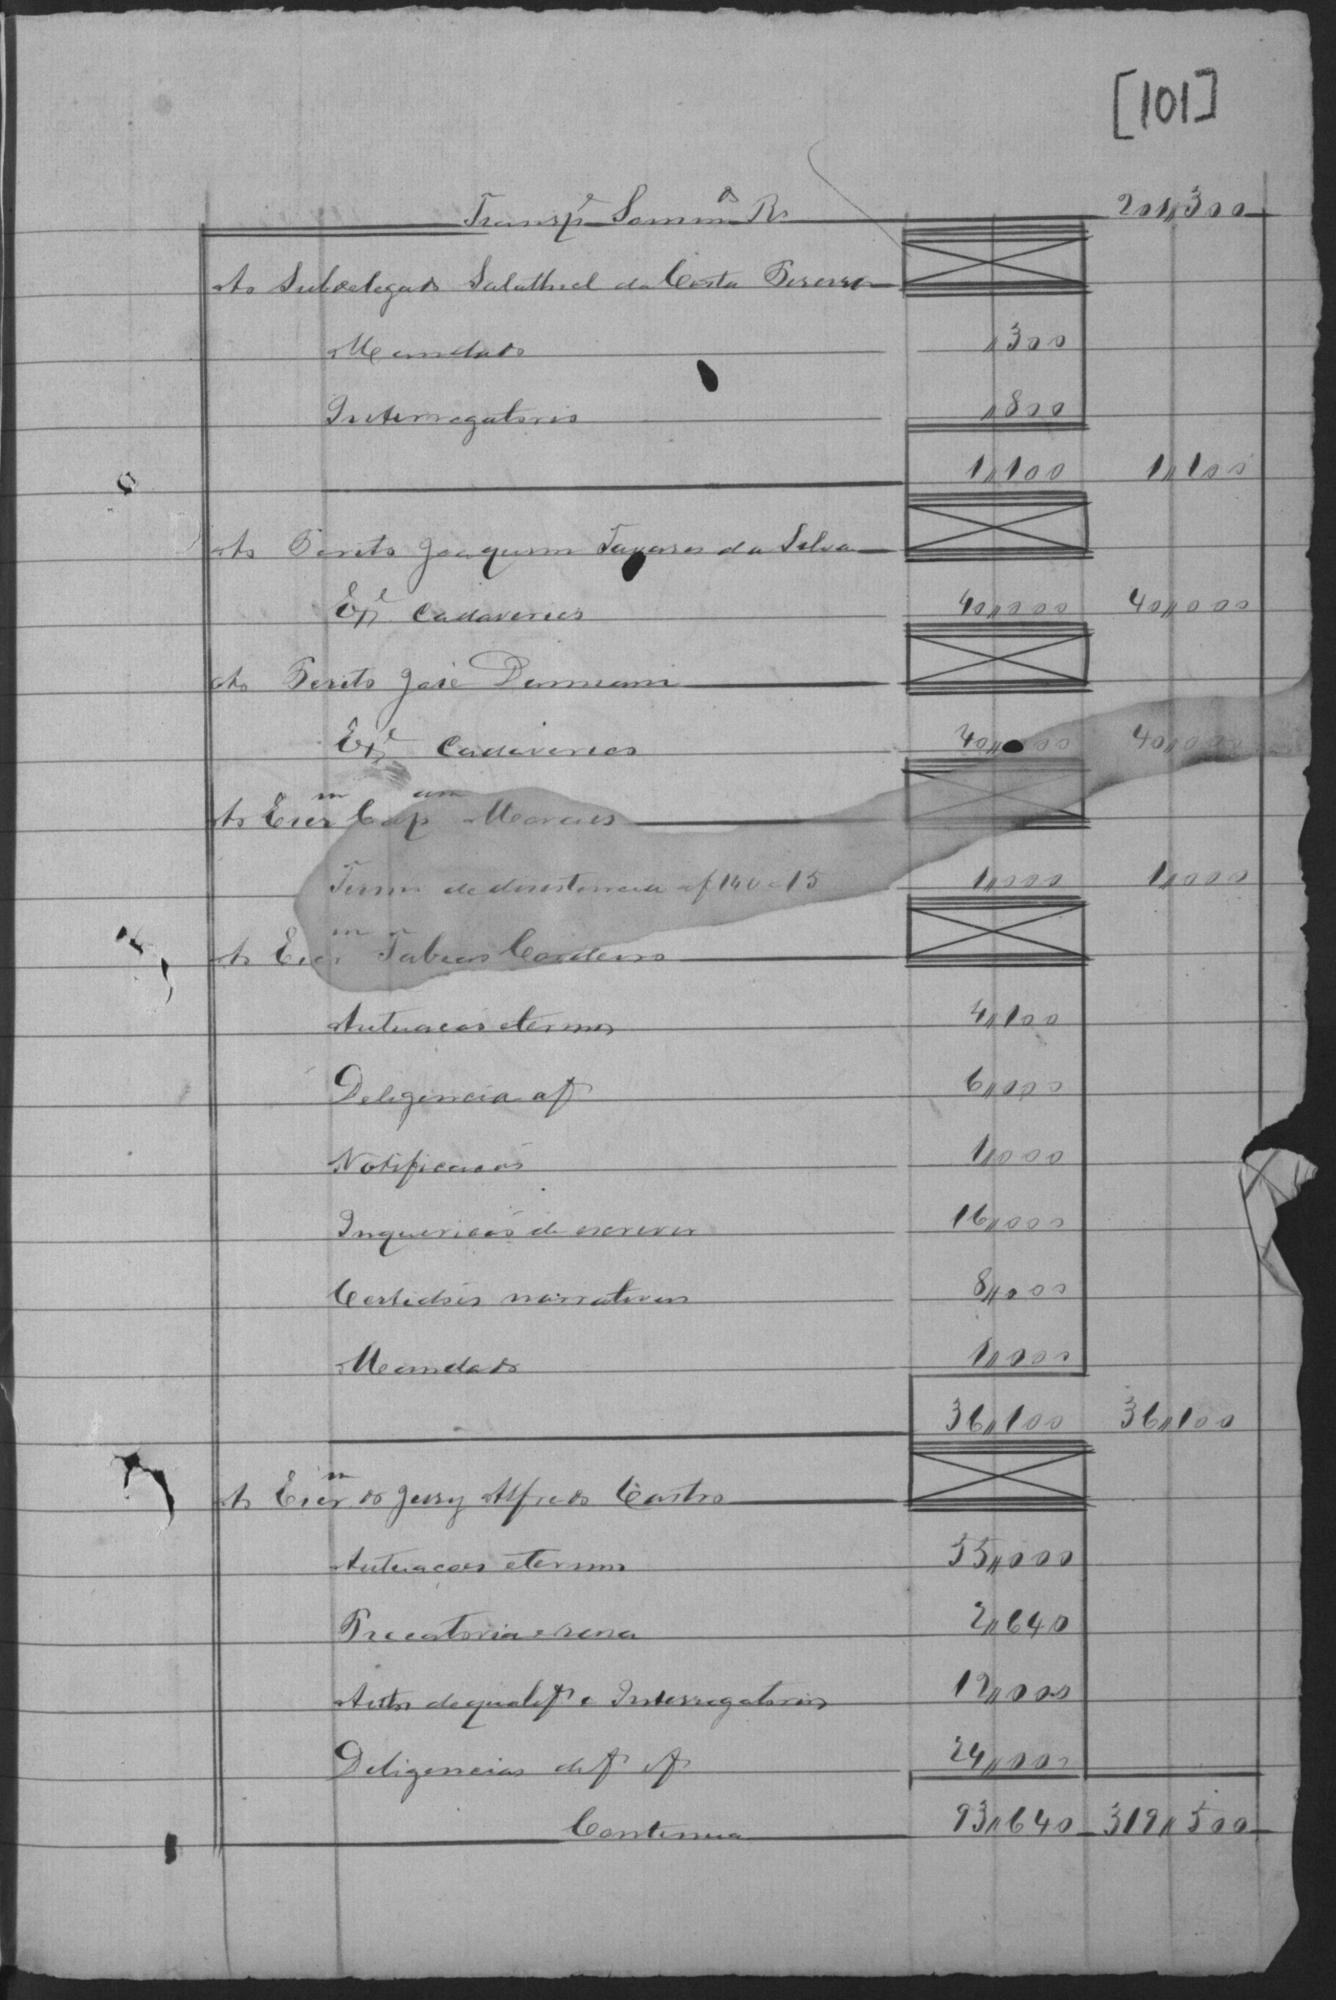 [101]
Transpe Sommdo Rs 201,,300
Ao Subdelegado Salathiel da Costa Pereira
Mandado ,,300
Interrogatorio ,,800
1,,100 1,,100
Ao Perito Joaquim Tavares da Silva
Expe Cadaverico 40,,000 40,,000
Ao Perito José
Expe Cadaverico 40,,000 40,,000
Ao Escrm Capam Marcus
Termo de desistencia af 14 v e 15 1,,000 1,,000
Ao Escrm Tabeao Cordeiro
Autuacao e termos 4,,100
Deligencia af 6,,000
Notificacaos 1,,000
Inquericaos de escrever 16,,000
Certidois narrativas 8,,000
Mandado 1,,000
36,,100 36,,100
Ao Escrm do Jury Alfredo Castro
Autuacoes e termos 55,,000
Precatoria e rasa 2,,640
Autos de qualf e Interrogatorios 12,,000
Deligencias de f af 24,,000
Continua 93,,640 319,,500